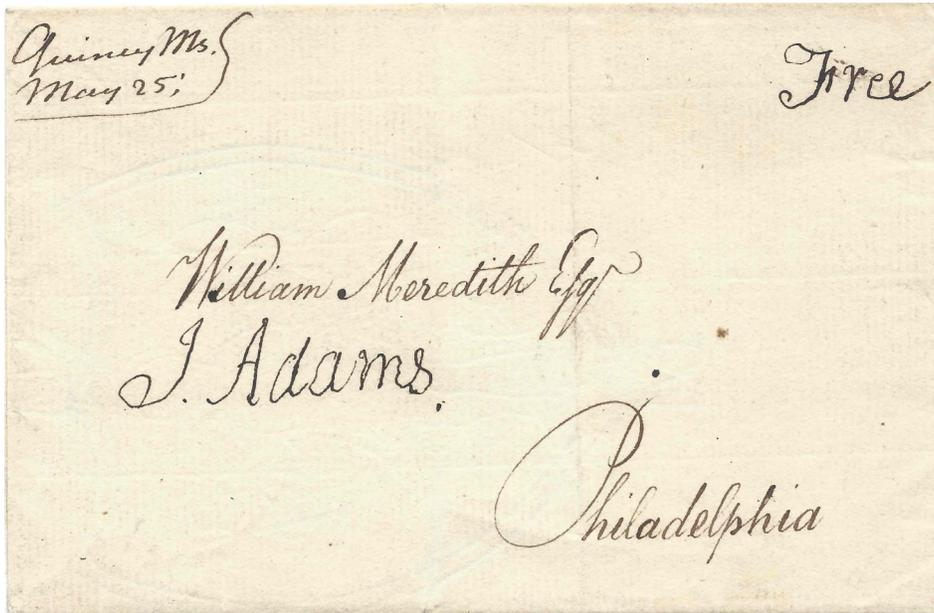 Quincy Ms.
May 25;
Free
William Meredith Esqr
J. Adams.
Philadelphia